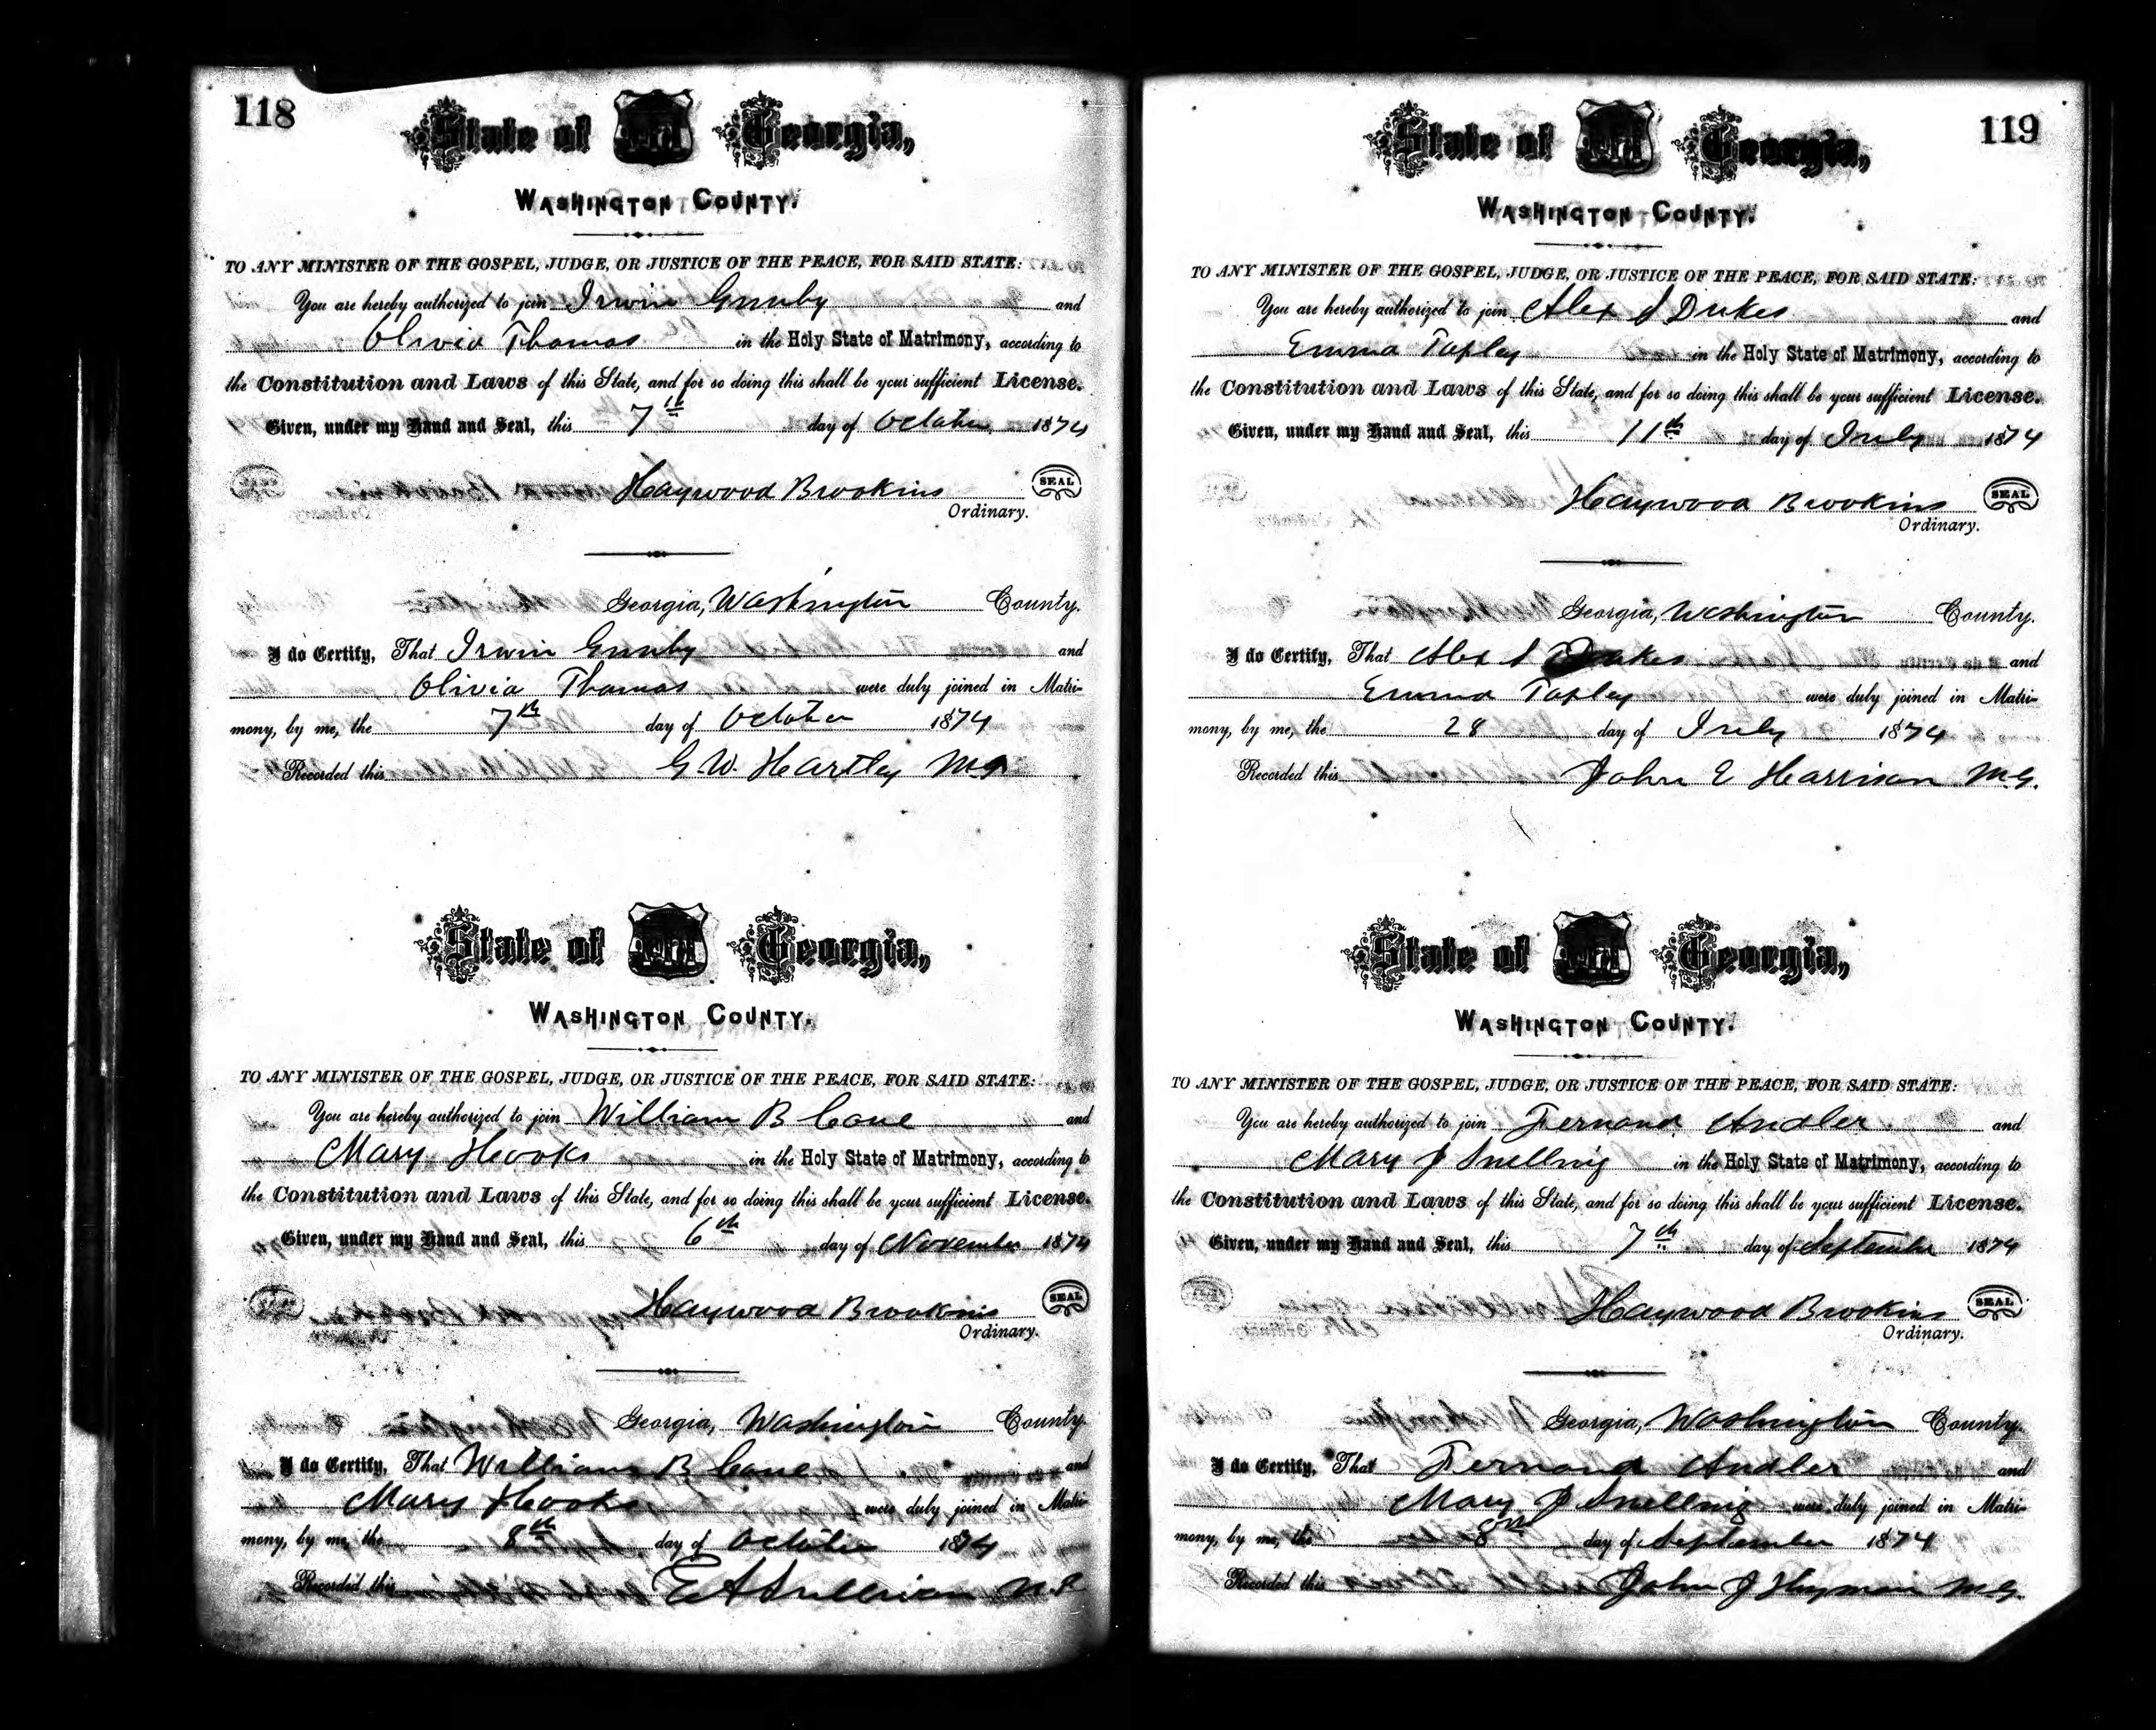 118
State of Georgia,
WASHINGTON COUNTY.
TO ANY MINISTER OF THE GOSPEL, JUDGE, OR JUSTICE OF THE PEACE, FOR SAID STATE:
You are hereby authorized to join Irwin Gunby and
Olivia Thomas in the Holy State of Matrimony, according to
the Constitution and Laws of this State, and for so doing this shall be your sufficient License.
Given, under my Hand and Seal, this 7th day of October 1874
Haywood Brookins SEAL
Ordinary.
Georgia, Washington County.
I do Certify, That Irwin Gunby and
Olivia Thomas were duly joined in Matri-
mony, by me, the 7th day of October 1874
Recorded this G. W. Hartley M.G.
State of Georgia,
WASHINGTON COUNTY.
TO ANY MINISTER OF THE GOSPEL, JUDGE, OR JUSTICE OF THE PEACE, FOR SAID STATE:
You are hereby authorized to join William B Cone and
Mary Hooks in the Holy State of Matrimony, according to
the Constitution and Laws of this State, and for so doing this shall be your sufficient License.
Given, under my Hand and Seal, this 6th day of November 1874
Haywood Brookins SEAL
Ordinary.
Georgia, Washington County
I do Certify, That William B Cone and
Mary Hooks were duly joined in Matri-
mony, by me, the 8th day of October 1874
Recorded this E A Sullivan N.P.
119
State of Georgia,
WASHINGTON COUNTY.
TO ANY MINISTER OF THE GOSPEL, JUDGE, OR JUSTICE OF THE PEACE, FOR SAID STATE:
You are hereby authorized to join Alex S Dukes and
Emma Tapley in the Holy State of Matrimony, according to
the Constitution and Laws of this State, and for so doing this shall be your sufficient License.
Given, under my Hand and Seal, this 11th day of July 1874
Haywood Brookins SEAL
Ordinary.
Georgia, Washington County.
I do Certify, That Alex S Dukes and
Emma Tapley were duly joined in Matri-
mony, by me, the 28 day of July 1874
Recorded this John E Harrison M.G.
State of Georgia,
WASHINGTON COUNTY.
TO ANY MINISTER OF THE GOSPEL, JUDGE, OR JUSTICE OF THE PEACE, FOR SAID STATE:
You are hereby authorized to join Fernand Andler and
Mary J Snelling in the Holy State of Matrimony, according to
the Constitution and Laws of this State, and for so doing this shall be your sufficient License.
Given, under my Hand and Seal, this 7th day of September 1874
Haywood Brookins SEAL
Ordinary.
Georgia, Washington County.
I do Certify, That Fernand Andler and
Mary J Snelling were duly joined in Matri-
mony, by me, the 8th day of September 1874
Recorded this John J Hyman M.G.